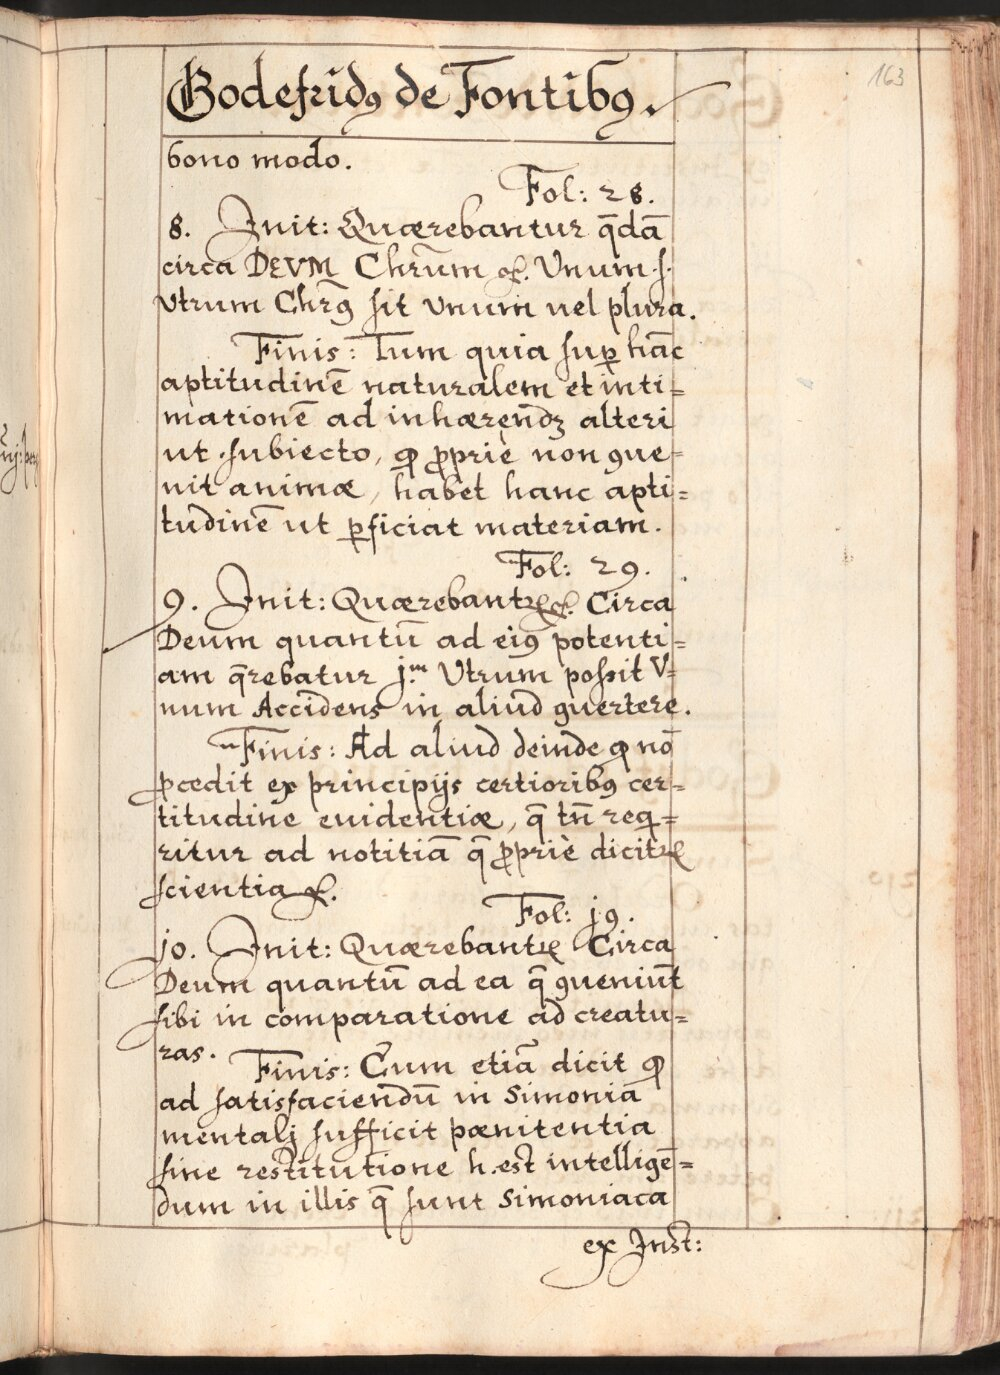 163
Godefridꝯ de Fontibꝯ.
bono modo.
Fol: 28.
8. Init: Quærebantur q̄dā
circa DEVM Chr̄um &. Vnum .s.
Vtrum Chrꝯ sit Vnum uel plura.
Finis: Tum quia sup̱ hāc
aptitudinē naturalem et inti=
mationē ad inhærendꝫ alteri
ut subiecto, ꝙ ꝓpriè non ꝯue=
nit animæ, habet hanc apti=
tudinē ut ꝑficiat materiam.
Fol: 29.
9. Init: Quærebantꝝ &. Circa
Deum quantū ad eiꝯ potenti=
am q̄rebatur j.m Vtrum possit V=
num Accidens in aliud ꝯuertere.
Finis: Ad aliud deinde ꝙ nō
ꝓcedit ex principijs certioribꝯ cer=
titudine euidentiæ, q̄ tn̄ req̄=
ritur ad notitiā q̄ ꝓpriè dicitꝝ
scientia &.
Fol: j9.
j0. Init: Quærebantꝝ Circa
Deum quantū ad ea q̄ ꝯueniūt
sibi in comparatione ad creatu=
ras.
Finis: Cum etiā dicit ꝙ
ad satisfaciendū in Simonia
mentalj sufficit pænitentia
sine restitutione h. est intelligē=
dum in illis q̄ sunt Simoniaca
ex Inst: